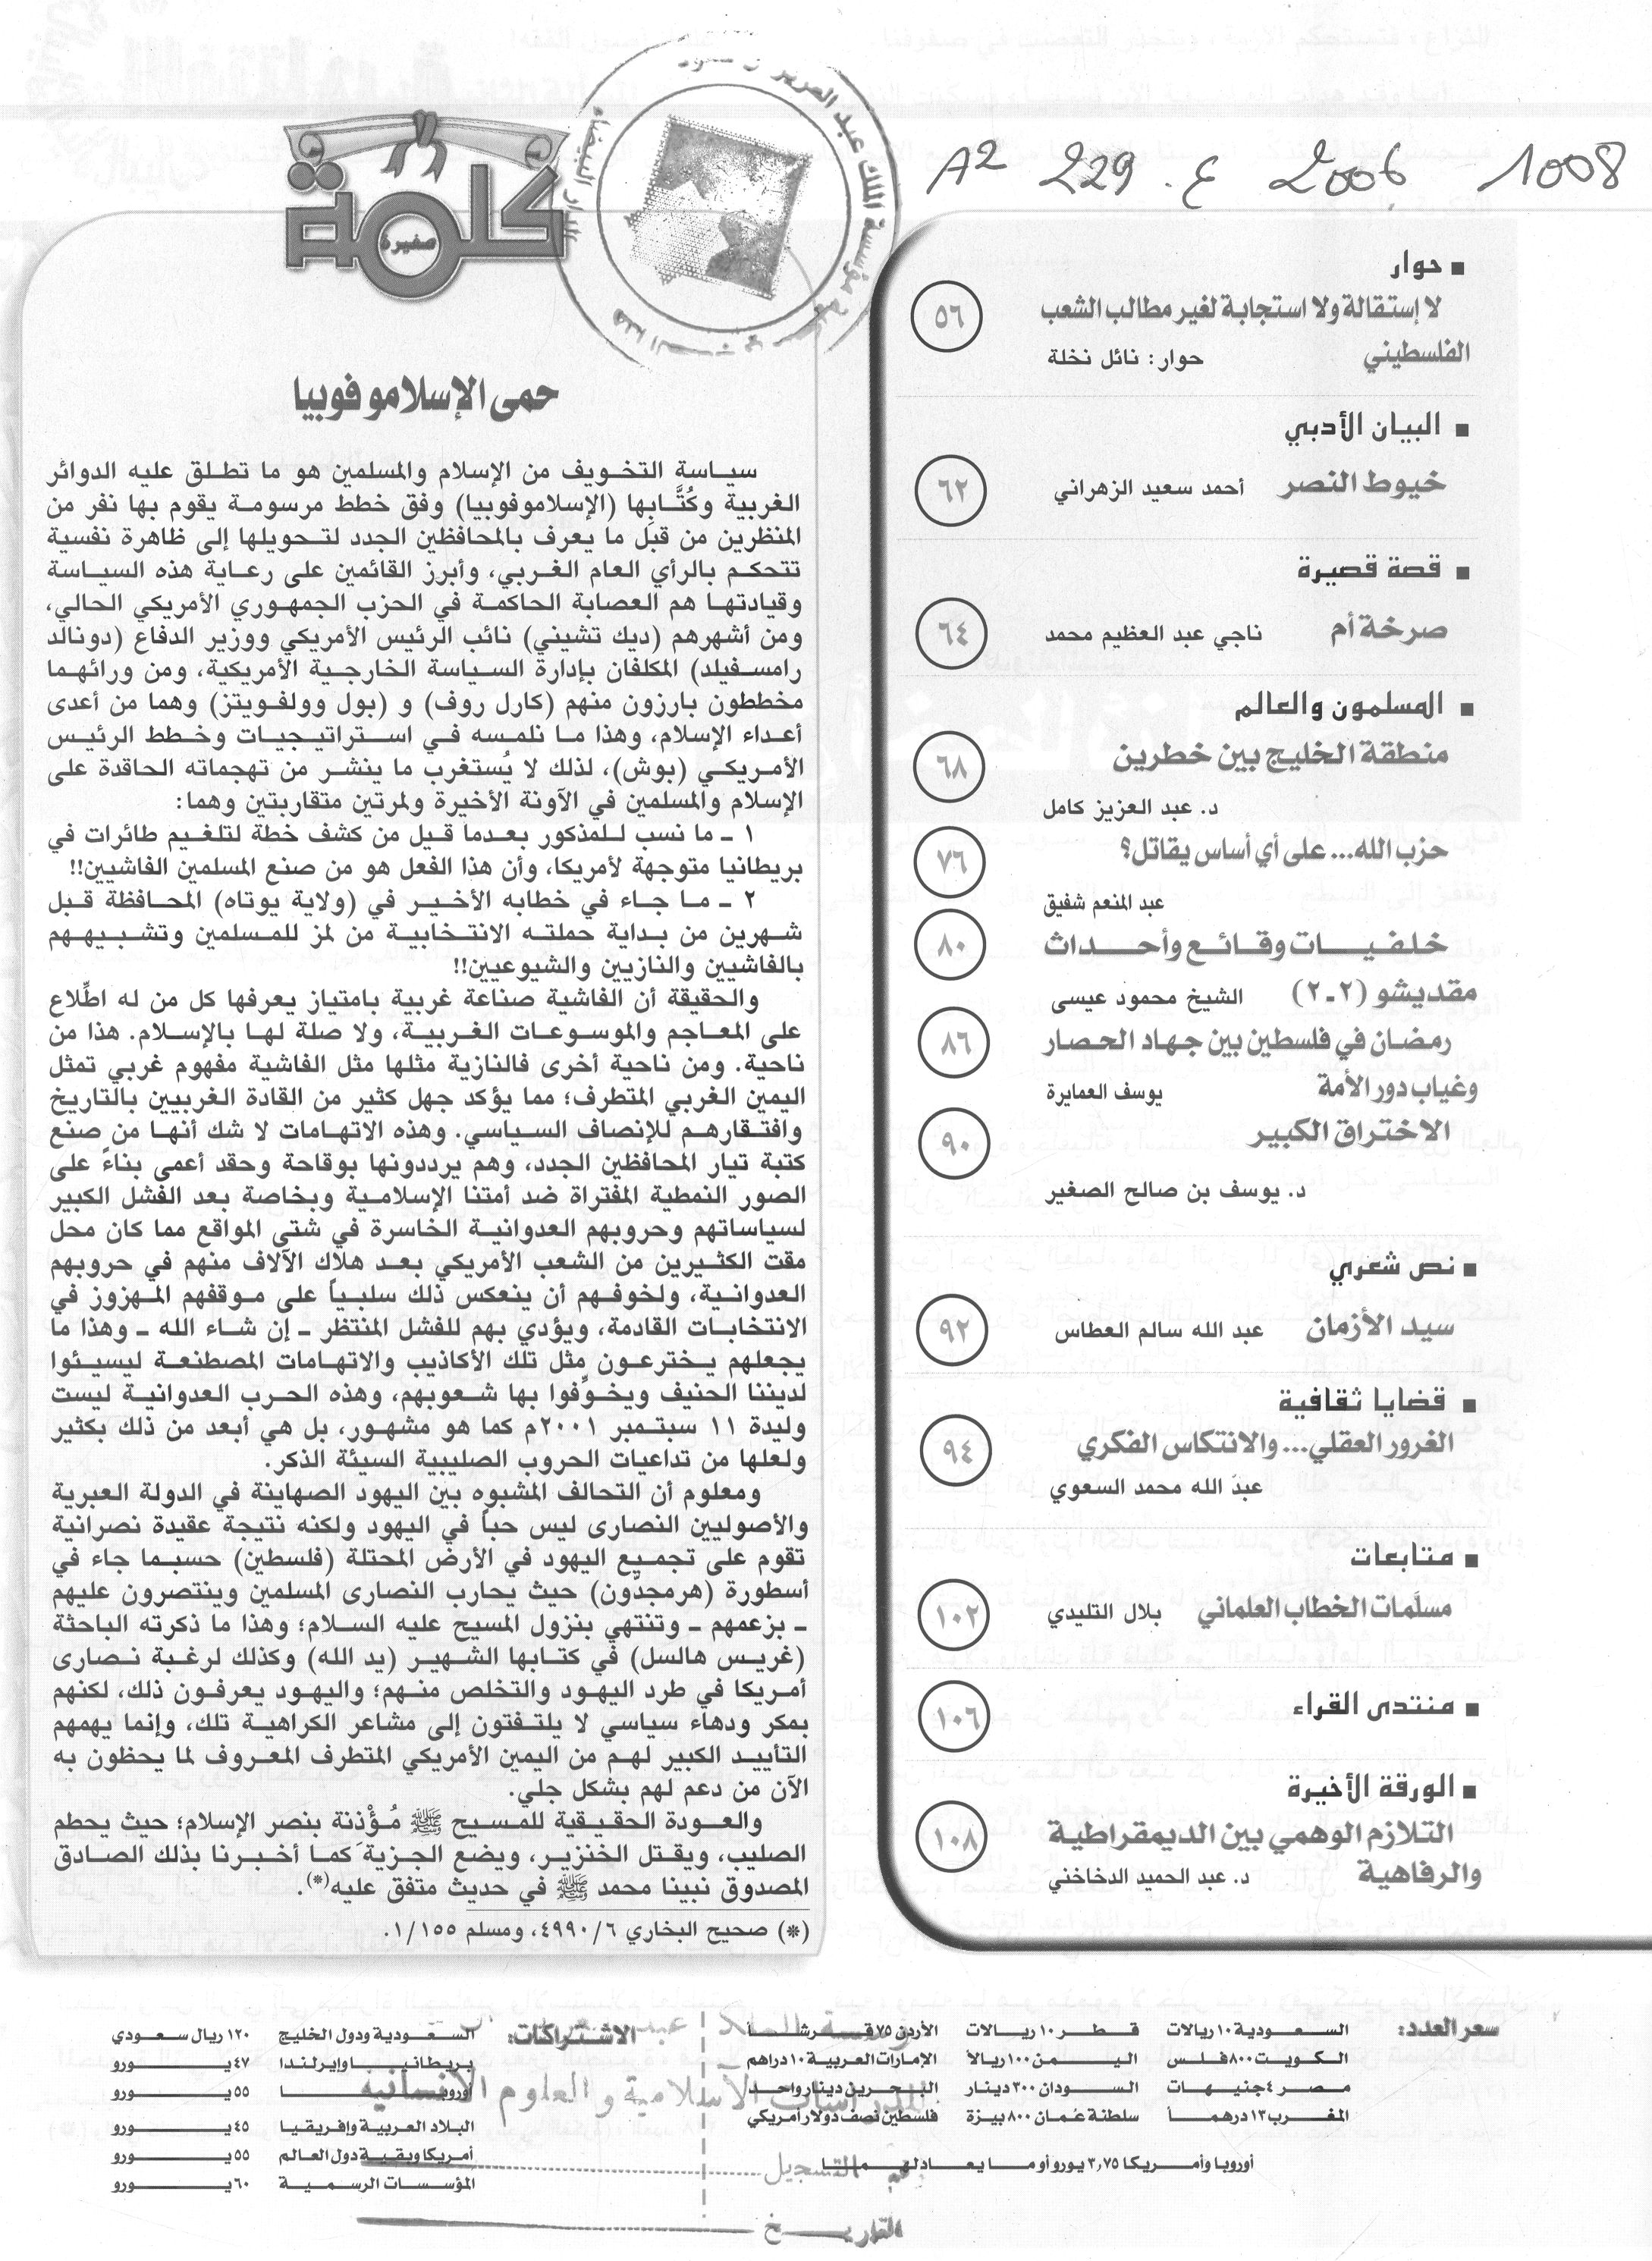 A2 229 .ع 2006 1008
■ حوار
لا إستقالة ولا استجابة لغير مطالب الشعب
٥٦
الفلسطيني حوار: نائل نخلة
■ البيان الأدبي
خيوط النصر أحمد سعيد الزهراني
٦٢
■ قصة قصيرة
صرخة أم ناجي عبد العظيم محمد
٦٤
■ المسلمون والعالم
منطقة الخليج بين خطرين
٦٨
د. عبد العزيز كامل
حزب الله... على أي أساس يقاتل؟
٧٦
عبد المنعم شفيق
خلفيات وقائع وأحداث
٨٠
مقديشو (٢ـ٢) الشيخ محمود عيسى
رمضان في فلسطين بين جهاد الحصار
٨٦
وغياب دور الأمة يوسف العمايرة
الاختراق الكبير
٩٠
د. يوسف بن صالح الصغير
■ نص شعري
سيد الأزمان عبد الله سالم العطاس
٩٢
■ قضايا ثقافية
الغرور العقلي... والانتكاس الفكري
٩٤
عبد الله محمد السعوي
■ متابعات
مسلّمات الخطاب العلماني بلال التليدي
١٠٢
■ منتدى القراء
١٠٦
■ الورقة الأخيرة
التلازم الوهمي بين الديمقراطية
١٠٨
والرفاهية د. عبد الحميد الدخاخني
كلمة
صغيرة
مؤسسة الملك عبد العزيز
الدار البيضاء
حمى الإسلاموفوبيا
سياسة التخويف من الإسلام والمسلمين هو ما تطلق عليه الدوائر
الغربية وكُتَّابِها (الإسلاموفوبيا) وفق خطط مرسومة يقوم بها نفر من
المنظرين من قبَل ما يعرف بالمحافظين الجدد لتحويلها إلى ظاهرة نفسية
تتحكم بالرأي العام الغربي، وأبرز القائمين على رعاية هذه السياسة
وقيادتها هم العصابة الحاكمة في الحزب الجمهوري الأمريكي الحالي،
ومن أشهرهم (ديك تشيني) نائب الرئيس الأمريكي ووزير الدفاع (دونالد
رامسفيلد) المكلفان بإدارة السياسة الخارجية الأمريكية، ومن ورائهما
مخططون بارزون منهم (كارل روف) و (بول وولفويتز) وهما من أعدى
أعداء الإسلام، وهذا ما نلمسه في استراتيجيات وخطط الرئيس
الأمريكي (بوش)، لذلك لا يُستغرب ما ينشر من تهجماته الحاقدة على
الإسلام والمسلمين في الآونة الأخيرة ولمرتين متقاربتين وهما:
١ ـ ما نسب للمذكور بعدما قيل من كشف خطة لتلغيم طائرات في
بريطانيا متوجهة لأمريكا، وأن هذا الفعل هو من صنع المسلمين الفاشيين!!
٢ ـ ما جاء في خطابه الأخير في (ولاية يوتاه) المحافظة قبل
شهرين من بداية حملته الانتخابية من لمز للمسلمين وتشبيههم
بالفاشيين والنازيين والشيوعيين!!
والحقيقة أن الفاشية صناعة غربية بامتياز يعرفها كل من له اطّلاع
على المعاجم والموسوعات الغربية، ولا صلة لها بالإسلام. هذا من
ناحية. ومن ناحية أخرى فالنازية مثلها مثل الفاشية مفهوم غربي تمثل
اليمين الغربي المتطرف؛ مما يؤكد جهل كثير من القادة الغربيين بالتاريخ
وافتقارهم للإنصاف السياسي. وهذه الاتهامات لا شك أنها من صنع
كتبة تيار المحافظين الجدد، وهم يرددونها بوقاحة وحقد أعمى بناءً على
الصور النمطية المفتراة ضد أمتنا الإسلامية وبخاصة بعد الفشل الكبير
لسياساتهم وحروبهم العدوانية الخاسرة في شتى المواقع مما كان محل
مقت الكثيرين من الشعب الأمريكي بعد هلاك الآلاف منهم في حروبهم
العدوانية، ولخوفهم أن ينعكس ذلك سلبياً على موقفهم المهزوز في
الانتخابات القادمة، ويؤدي بهم للفشل المنتظر ـ إن شاء الله ـ وهذا ما
يجعلهم يخترعون مثل تلك الأكاذيب والاتهامات المصطنعة ليسيئوا
لديننا الحنيف ويخوِّفوا بها شعوبهم، وهذه الحرب العدوانية ليست
وليدة ١١ سبتمبر ٢٠٠١م كما هو مشهور، بل هي أبعد من ذلك بكثير
ولعلها من تداعيات الحروب الصليبية السيئة الذكر.
ومعلوم أن التحالف المشبوه بين اليهود الصهاينة في الدولة العبرية
والأصوليين النصارى ليس حباً في اليهود ولكنه نتيجة عقيدة نصرانية
تقوم على تجميع اليهود في الأرض المحتلة (فلسطين) حسبما جاء في
أسطورة (هرمجدّون) حيث يحارب النصارى المسلمين وينتصرون عليهم
ـ بزعمهم ـ وتنتهي بنزول المسيح عليه السلام؛ وهذا ما ذكرته الباحثة
(غريس هالسل) في كتابها الشهير (يد الله) وكذلك لرغبة نصارى
أمريكا في طرد اليهود والتخلص منهم؛ واليهود يعرفون ذلك، لكنهم
بمكر ودهاء سياسي لا يلتفتون إلى مشاعر الكراهية تلك، وإنما يهمهم
التأييد الكبير لهم من اليمين الأمريكي المتطرف المعروف لما يحظون به
الآن من دعم لهم بشكل جلي.
والعودة الحقيقية للمسيح ﷺ مُؤْذنة بنصر الإسلام؛ حيث يحطم
الصليب، ويقتل الخنزير، ويضع الجزية كما أخبرنا بذلك الصادق
المصدوق نبينا محمد ﷺ في حديث متفق عليه(*).
(*) صحيح البخاري ٤٩٩٠/٦، ومسلم ١/١٥٥.
سعر العدد: السعودية ١٠ ريالات قطر ١٠ ريالات الأردن ٧٥ قرشاً
الكويت ٨٠٠ فلس اليمن ١٠٠ ريالاً الإمارات العربية ١٠ دراهم
مصر ٤ جنيهات السودان ٣٠٠ دينار البحرين دينار واحد
المغرب ١٣ درهماً سلطنة عُمان ٨٠٠ بيزة فلسطين نصف دولار أمريكي
أوروبا وأمريكا ٣,٧٥ يورو أو ما يعادلهما
الاشتراكات: السعودية ودول الخليج ١٢٠ ريال سعودي
بريطانيا وإيرلندا ٤٧ يورو
أوروبا ٥٥ يورو
البلاد العربية وإفريقيا ٤٥ يورو
أمريكا وبقية دول العالم ٥٥ يورو
المؤسسات الرسمية ٦٠ يورو
للدراسات الاسلامية و العلوم الانسانية
التسجيل
التاريخ